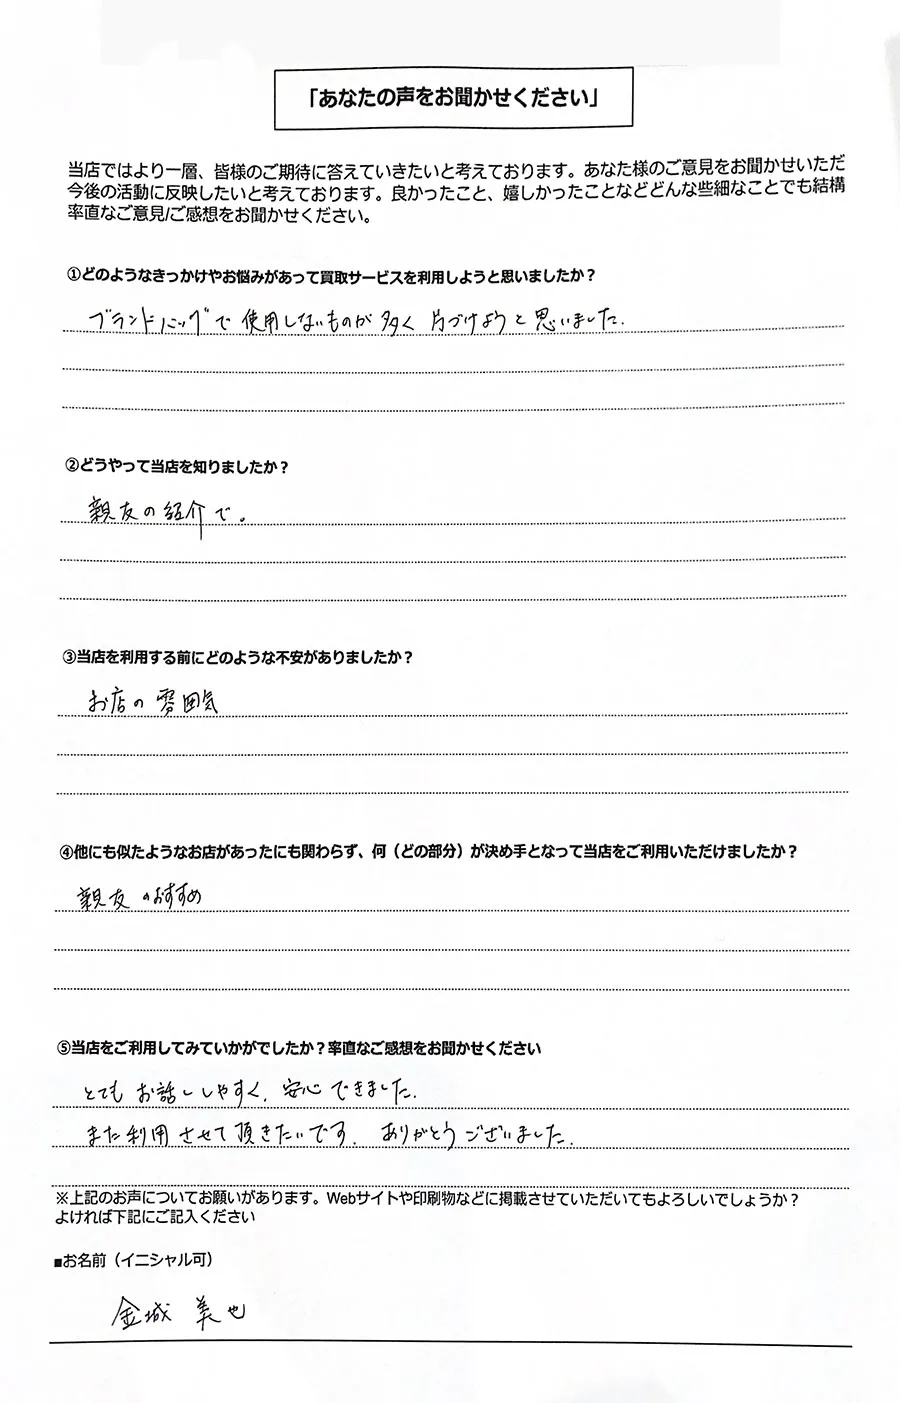 「あなたの声をお聞かせください」
当店ではより一層、皆様のご期待に答えていきたいと考えております。あなた様のご意見をお聞かせいただ
今後の活動に反映したいと考えております。良かったこと、嬉しかったことなどどんな些細なことでも結構
率直なご意見/ご感想をお聞かせください。
①どのようなきっかけやお悩みがあって買取サービスを利用しようと思いましたか？
ブランドバッグで使用しないものが多く片づけようと思いました.
②どうやって当店を知りましたか？
親友の紹介で。
③当店を利用する前にどのような不安がありましたか？
お店の雰囲気
④他にも似たようなお店があったにも関わらず、何（どの部分）が決め手となって当店をご利用いただけましたか？
親友のおすすめ
⑤当店をご利用してみていかがでしたか？率直なご感想をお聞かせください
とてもお話ししやすく、安心できました.
また利用させて頂きたいです. ありがとうございました.
※上記のお声についてお願いがあります。Webサイトや印刷物などに掲載させていただいてもよろしいでしょうか？
よければ下記にご記入ください
■お名前（イニシャル可）
金城 美也